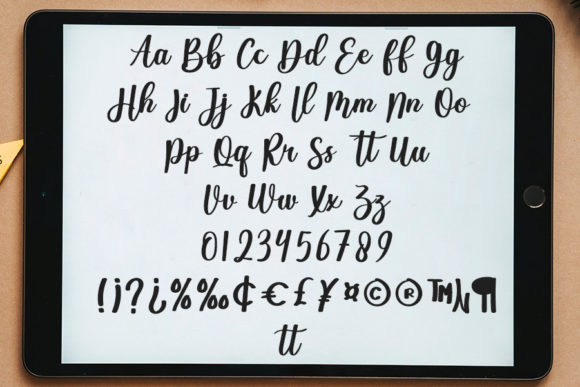 Aa Bb Cc Dd Ee Ff Gg
Hh Ii Jj Kk Ll Mm Nn Oo
Pp Qq Rr Ss Tt Uu
Vv Ww Xx Zz
0123456789
!¡?¿%‰¢€£¥¤©®™¶
tt